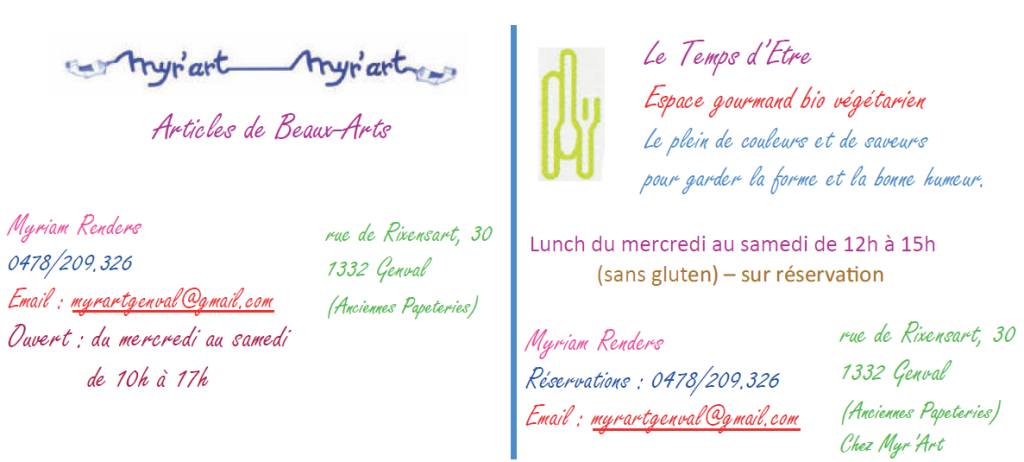 myr'art myr'art
Articles de Beaux-Arts
Myriam Renders
0478/209.326
Email : myrartgenval@gmail.com
Ouvert : du mercredi au samedi
de 10h à 17h
rue de Rixensart, 30
1332 Genval
(Anciennes Papeteries)
Le Temps d'Etre
Espace gourmand bio végétarien
Le plein de couleurs et de saveurs
pour garder la forme et la bonne humeur.
Lunch du mercredi au samedi de 12h à 15h
(sans gluten) – sur réservation
Myriam Renders
Réservations : 0478/209.326
Email : myrartgenval@gmail.com
rue de Rixensart, 30
1332 Genval
(Anciennes Papeteries)
Chez Myr'Art